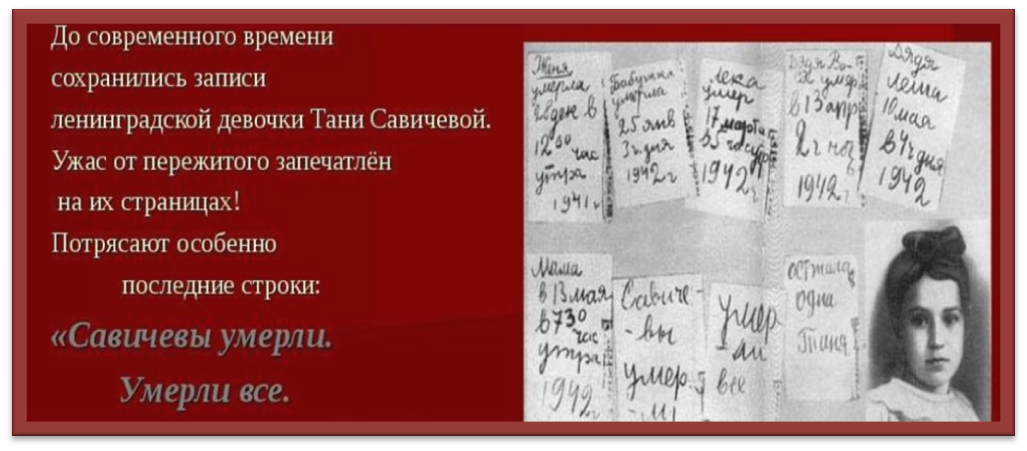 До современного времени
сохранились записи
ленинградской девочки Тани Савичевой.
Ужас от пережитого запечатлён
на их страницах!
Потрясают особенно
последние строки:
«Савичевы умерли.
Умерли все.
Женя
умерла
28 дек в
12 00 час
утра
1941 г
Бабушка
умерла
25 янв
3 ч. дня
1942 г
Лека
умер
17 марта
в 5 час утр
1942 г
Дядя Ва
умер
в 13 апр
2 ч ноч
1942 г
Дядя
Леша
10 мая
в 4 ч дня
1942
Мама
в 13 мая
в 7 30
час
утра
1942 г
Савиче-
-вы
умер-
-ли
Умер-
-ли
все
Осталась
одна
Таня